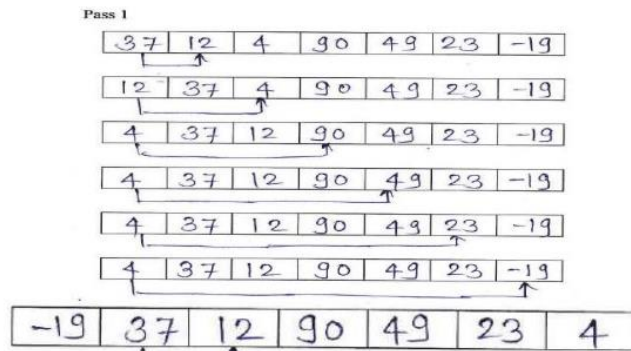 Pass 1
37 12 4 90 49 23 -19
12 37 4 90 49 23 -19
4 37 12 90 49 23 -19
4 37 12 90 49 23 -19
4 37 12 90 49 23 -19
4 37 12 90 49 23 -19
-19 37 12 90 49 23 4